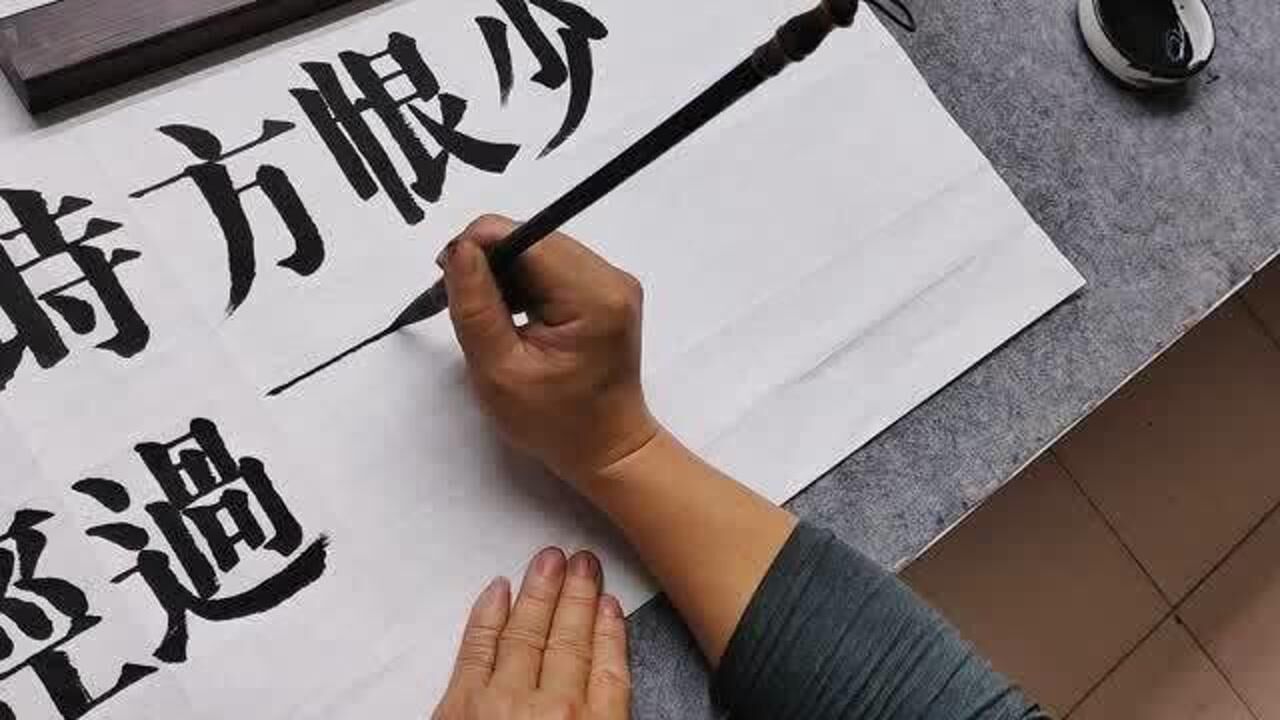 時方恨少
過